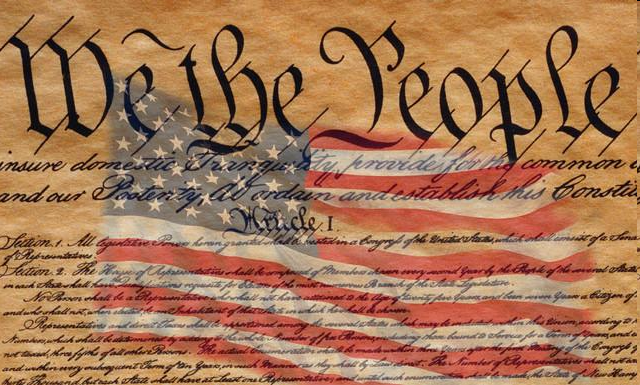 We the People
insure domestic Tranquility, provide for the common
and our Posterity, do ordain and establish this Constitu
Article. I
Section. 1. All legislative Powers herein granted shall be vested in a Congress of the United States, which shall consist of a Senate
of Representatives.
Section. 2. The House of Representatives shall be composed of Members chosen every second Year by the People of the several States
in each State shall have the Qualifications requisite for Electors of the most numerous Branch of the State Legislature.
No Person shall be a Representative who shall not have attained to the Age of twenty five Years, and been seven Years a Citizen of
and who shall not, when elected, be an Inhabitant of that State in which he shall be chosen.
Representatives and direct Taxes shall be apportioned among the several States which may be included within this Union, according to
Numbers, which shall be determined by adding to the whole Number of free Persons, including those bound to Service for a Term of Years
not taxed, three fifths of all other Persons. The actual Enumeration shall be made within three Years after the first Meeting of the Congress
and within every subsequent Term of ten Years, in such Manner as they shall by Law direct. The Number of Representatives shall not
thirty Thousand, but each State shall have at Least one Representative; and until such enumeration shall be made, the State of New Ham